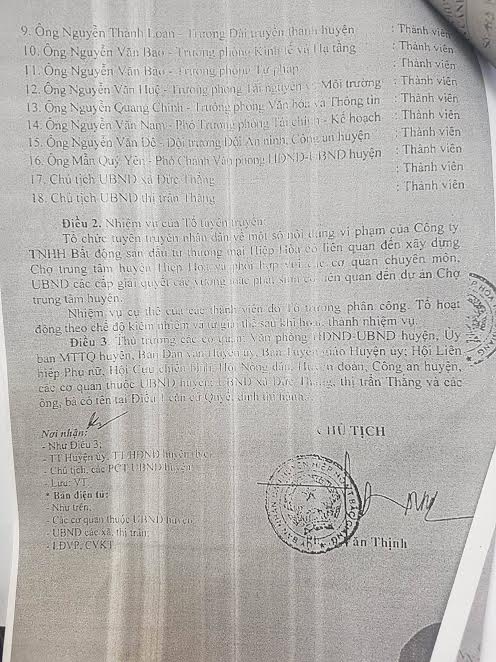 9. Ông Nguyễn Thành Loan - Trưởng Đài truyền thanh huyện : Thành viên
10. Ông Nguyễn Văn Bao - Trưởng phòng Kinh tế và Hạ tầng : Thành viên
11. Ông Nguyễn Văn Bảo - Trưởng phòng Tư pháp : Thành viên
12. Ông Nguyễn Văn Huệ - Trưởng phòng Tài nguyên và Môi trường : Thành viên
13. Ông Nguyễn Quang Chính - Trưởng phòng Văn hóa và Thông tin : Thành viên
14. Ông Nguyễn Văn Nam - Phó Trưởng phòng Tài chính - Kế hoạch : Thành viên
15. Ông Nguyễn Văn Đê - Đội trưởng Đội An ninh, Công an huyện : Thành viên
16. Ông Mẫn Quý Yên - Phó Chánh Văn phòng HĐND-UBND huyện : Thành viên
17. Chủ tịch UBND xã Đức Thắng : Thành viên
18. Chủ tịch UBND thị trấn Thắng : Thành viên
Điều 2. Nhiệm vụ của Tổ tuyên truyền:
Tổ chức tuyên truyền nhân dân về một số nội dung vi phạm của Công ty
TNHH Bất động sản đầu tư thương mại Hiệp Hòa có liên quan đến xây dựng
Chợ trung tâm huyện Hiệp Hòa và phối hợp với các cơ quan chuyên môn,
UBND các cấp giải quyết các vướng mắc phát sinh có liên quan đến dự án Chợ
trung tâm huyện.
Nhiệm vụ cụ thể của các thành viên do Tổ trưởng phân công. Tổ hoạt
động theo chế độ kiêm nhiệm và tự giải thể sau khi hoàn thành nhiệm vụ.
Điều 3. Thủ trưởng các cơ quan: Văn phòng HĐND-UBND huyện, Ủy
ban MTTQ huyện, Ban Dân vận Huyện ủy, Ban Tuyên giáo Huyện ủy; Hội Liên
hiệp Phụ nữ, Hội Cựu chiến binh, Hội Nông dân, Huyện đoàn, Công an huyện,
các cơ quan thuộc UBND huyện; UBND xã Đức Thắng, thị trấn Thắng và các
ông, bà có tên tại Điều 1 căn cứ Quyết định thi hành.
Nơi nhận:
- Như Điều 3;
- TT Huyện ủy, TT HĐND huyện
- Chủ tịch, các PCT UBND huyện;
- Lưu: VT.
* Bản điện tử:
- Như trên,
- Các cơ quan thuộc UBND huyện;
- UBND các xã, thị trấn;
- LĐVP, CVKT.
CHỦ TỊCH
Văn Thịnh